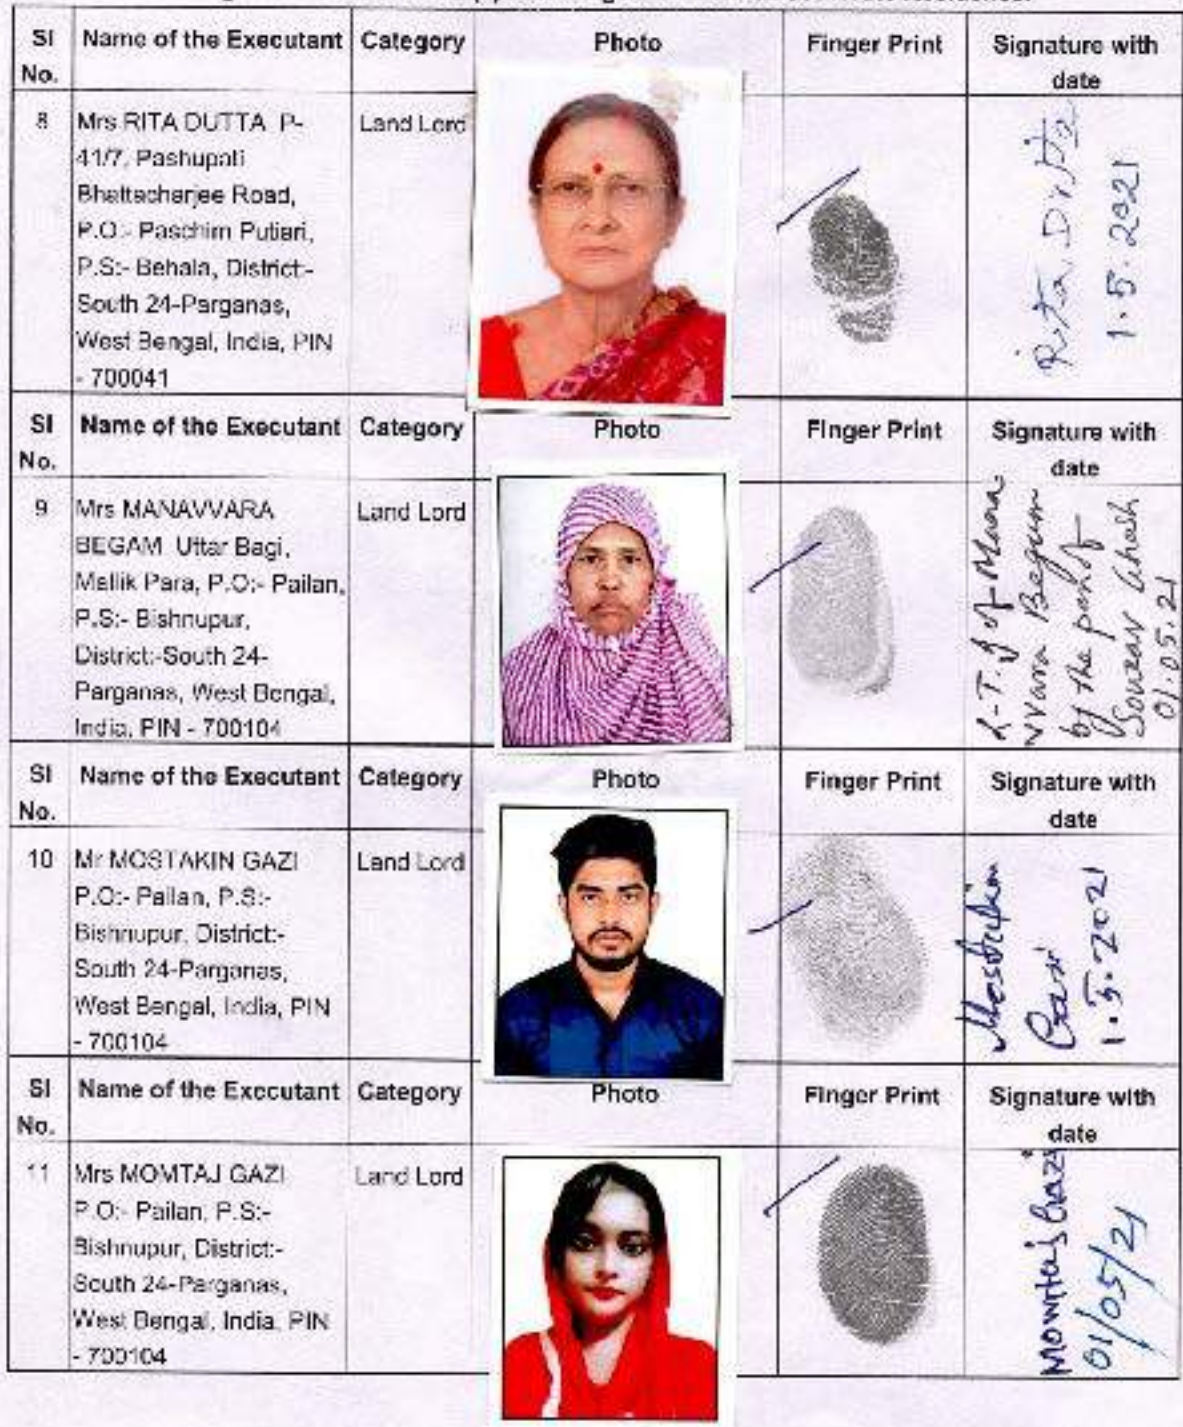 SI No. Name of the Executant Category Photo Finger Print Signature with date
8 Mrs RITA DUTTA P- Land Lord
41/7, Pashupati
Bhattacharjee Road,
P.O:- Paschim Putiari,
P.S:- Behala, District:-
South 24-Parganas,
West Bengal, India, PIN
- 700041
Rita Dutta
1.5.2021
SI No. Name of the Executant Category Photo Finger Print Signature with date
9 Mrs MANAVVARA Land Lord
BEGAM Uttar Bagi,
Mallik Para, P.O:- Pailan,
P.S:- Bishnupur,
District:-South 24-
Parganas, West Bengal,
India, PIN - 700104
L.T.I of Mana-
vvara Begum
by the pen of
Ghosh
01.05.21
SI No. Name of the Executant Category Photo Finger Print Signature with date
10 Mr MOSTAKIN GAZI Land Lord
P.O:- Pailan, P.S:-
Bishnupur, District:-
South 24-Parganas,
West Bengal, India, PIN
- 700104
Mostakin
Gazi
1.5.2021
SI No. Name of the Executant Category Photo Finger Print Signature with date
11 Mrs MOMTAJ GAZI Land Lord
P.O:- Pailan, P.S:-
Bishnupur, District:-
South 24-Parganas,
West Bengal, India, PIN
- 700104
Momtaj Gazi
01/05/21